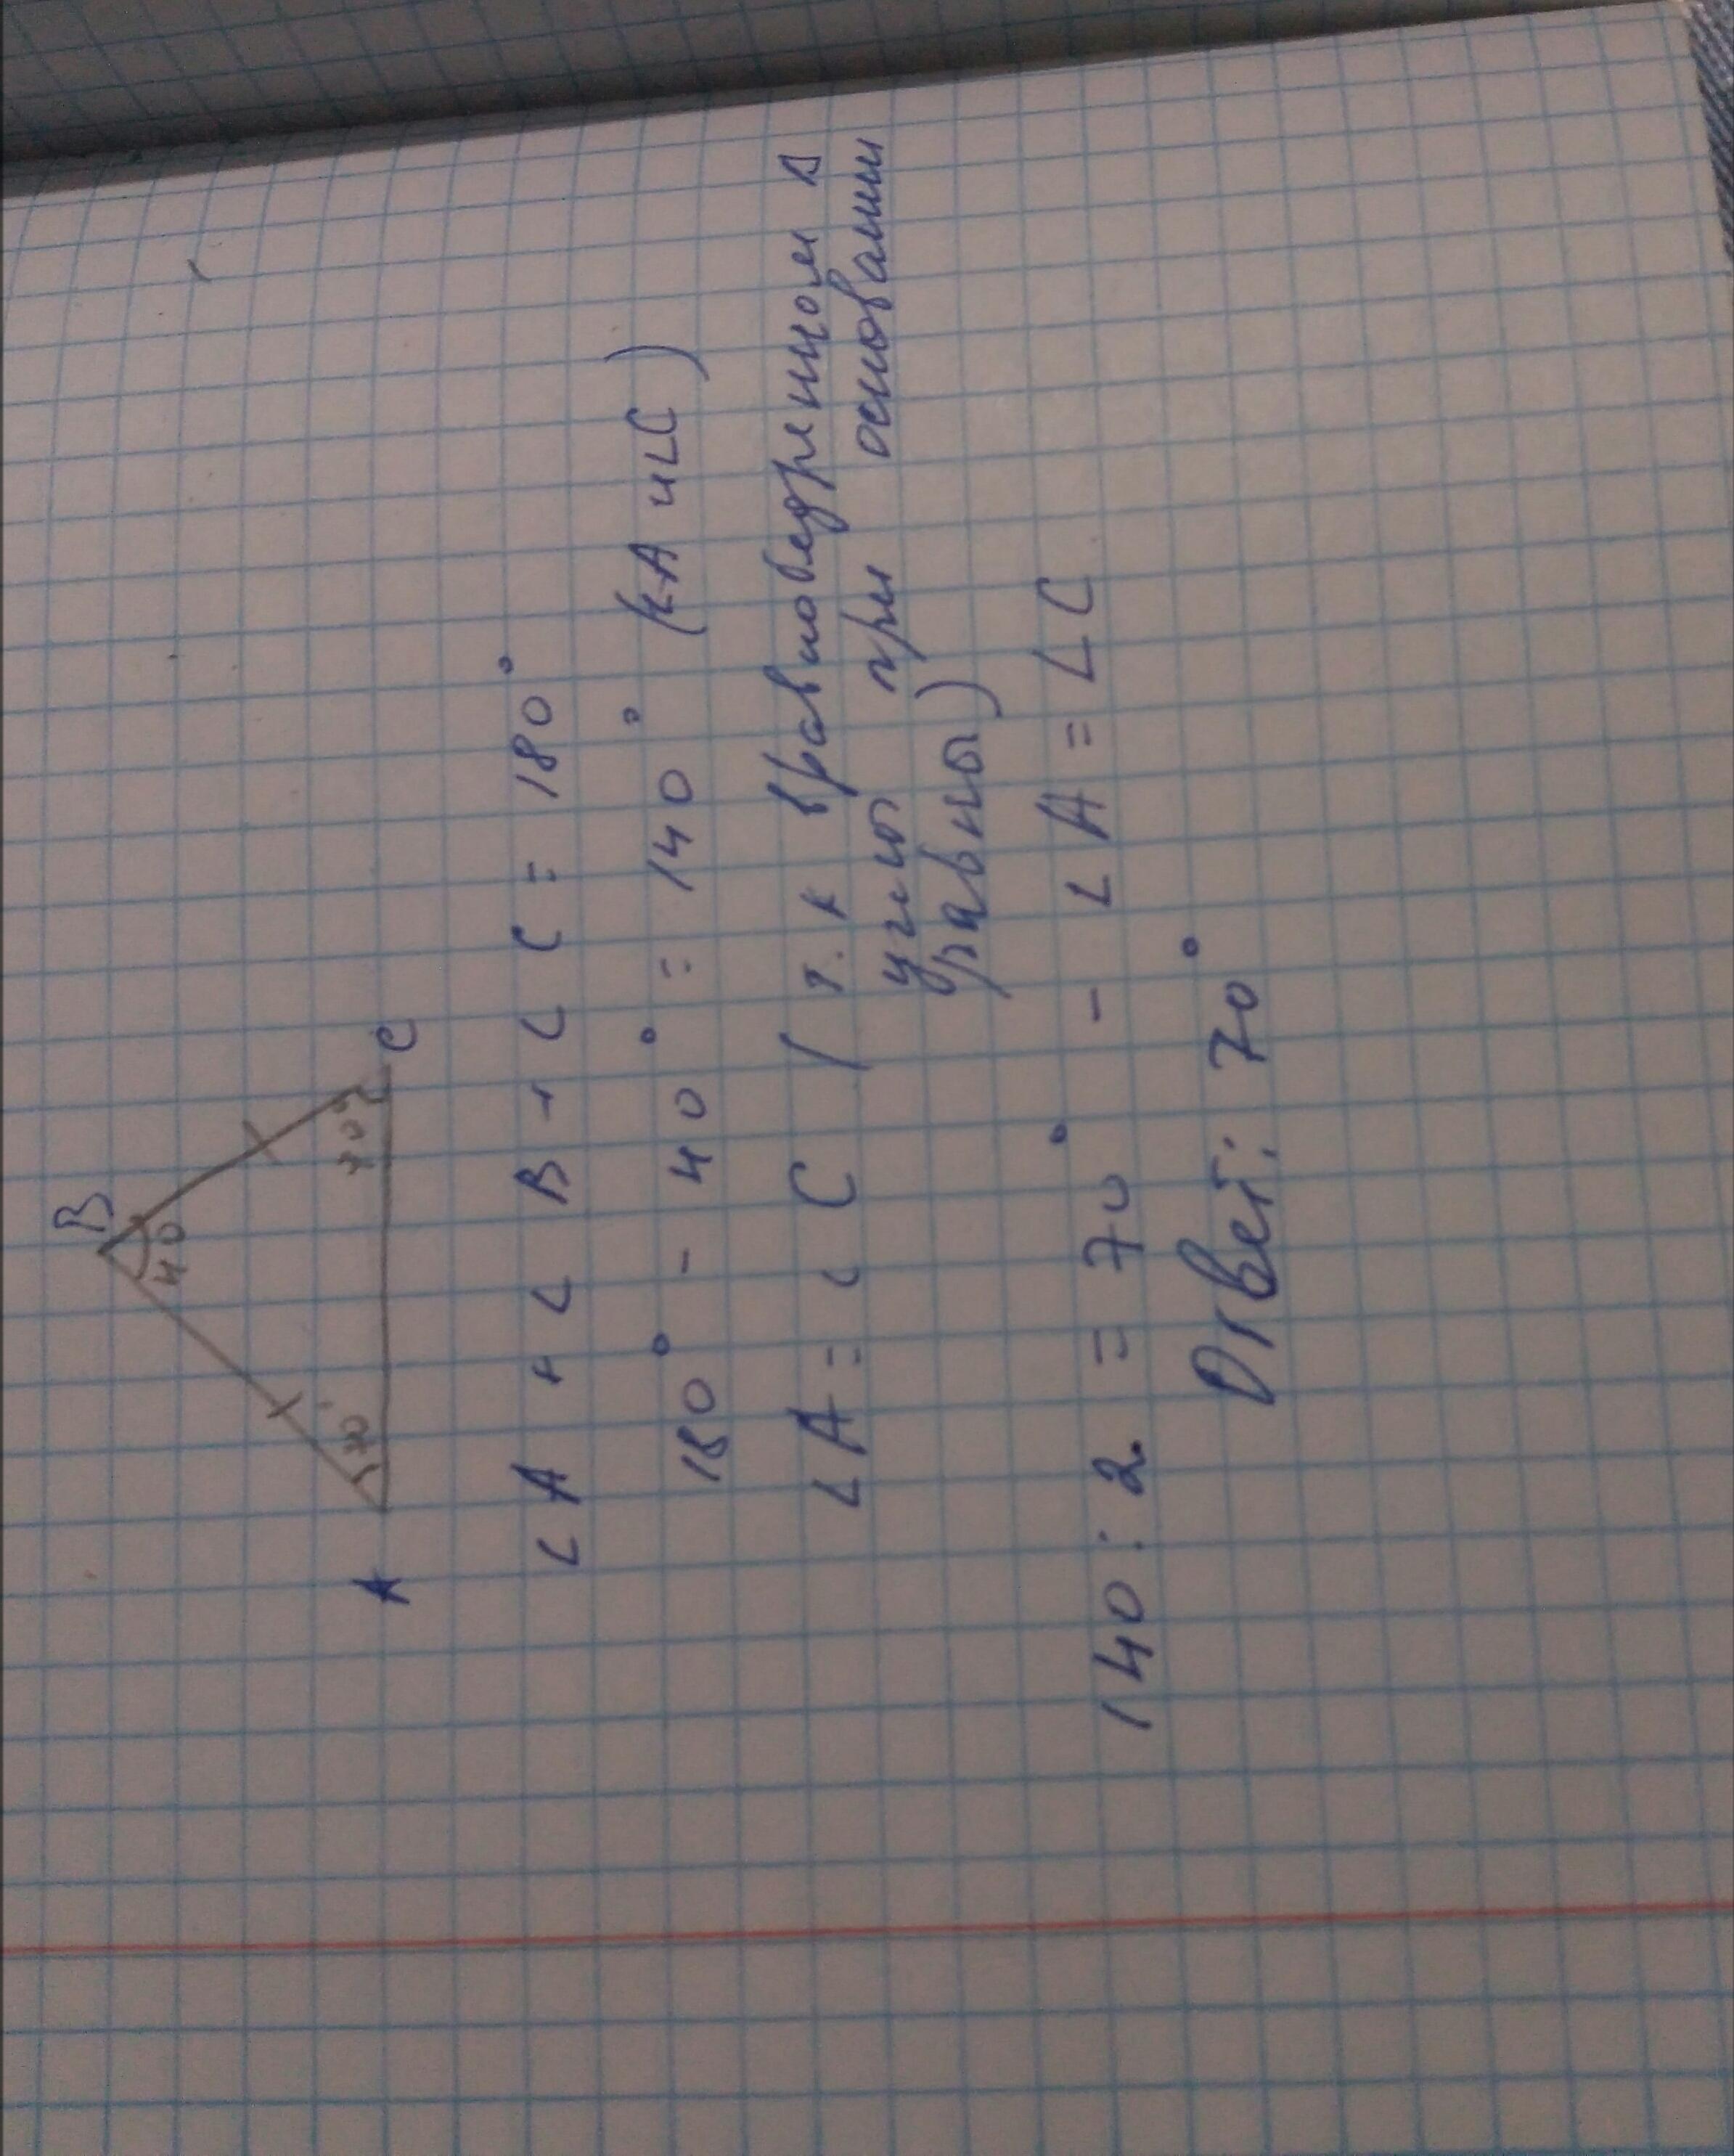 B
40
70°
70°
A
C
∠A + ∠B + ∠C = 180°
180° - 40° = 140° (∠A и ∠C)
∠A = ∠C (т.к в равнобедренном Δ
углы при основании
равны)
140 : 2 = 70° - ∠A = ∠C
Ответ: 70°